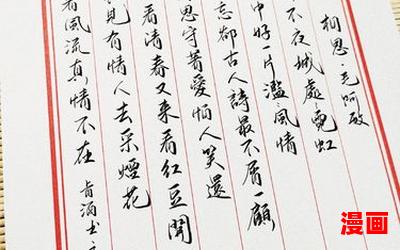 相思·毛阿敏
不夜城處·霓虹
中好一片濫風情
忘却古人詩最不屑一顧
思守著愛怕人笑還
看清春又來看紅豆開
見有情人去采煙花
着風流真情不在
漫画